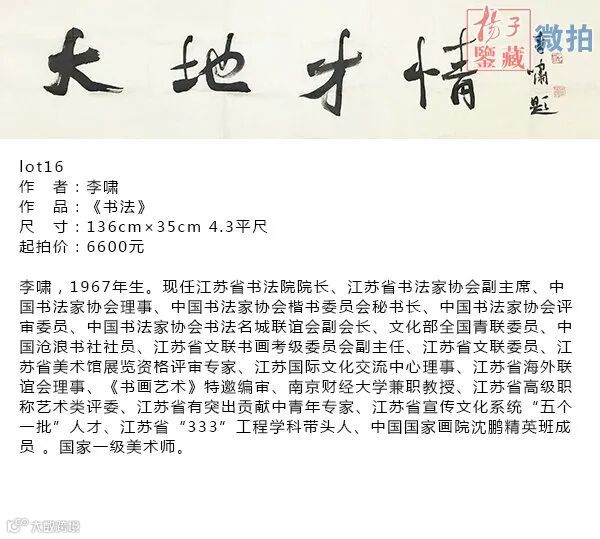 大地才情
李啸题
扬子
鉴藏
微拍
lot16
作　者：李啸
作　品：《书法》
尺　寸：136cm×35cm 4.3平尺
起拍价：6600元
李啸，1967年生。现任江苏省书法院院长、江苏省书法家协会副主席、中
国书法家协会理事、中国书法家协会楷书委员会秘书长、中国书法家协会评
审委员、中国书法家协会书法名城联谊会副会长、文化部全国青联委员、中
国沧浪书社社员、江苏省文联书画考级委员会副主任、江苏省文联委员、江
苏省美术馆展览资格评审专家、江苏国际文化交流中心理事、江苏省海外联
谊会理事、《书画艺术》特邀编审、南京财经大学兼职教授、江苏省高级职
称艺术类评委、江苏省有突出贡献中青年专家、江苏省宣传文化系统“五个
一批”人才、江苏省“333”工程学科带头人、中国国家画院沈鹏精英班成
员 。国家一级美术师。
大数跨境